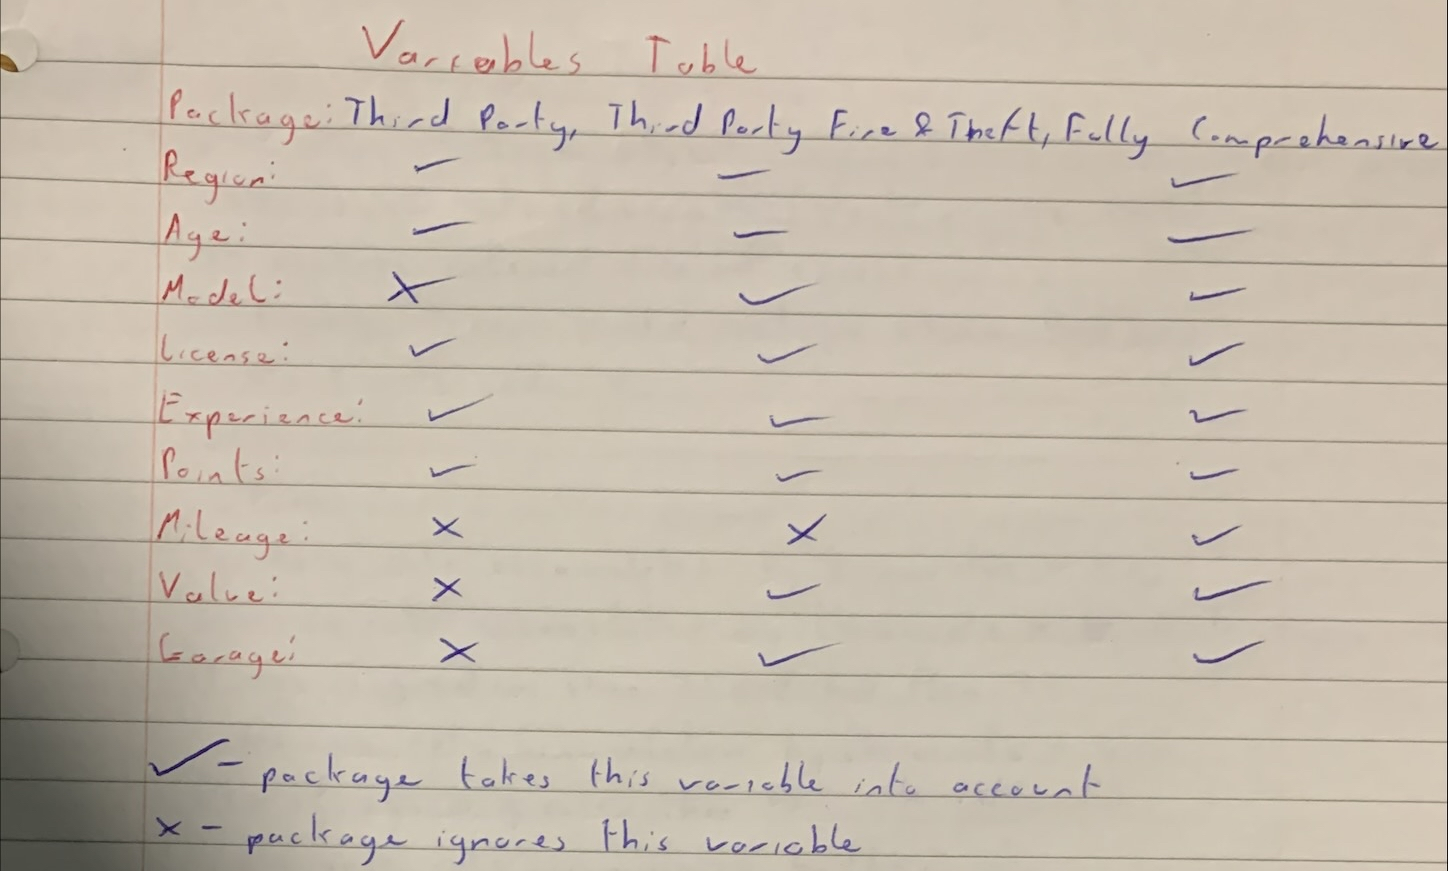 Variables Table
Package: Third Party, Third Party Fire & Theft, Fully Comprehensive
Region: ✓ ✓ ✓
Age: ✓ ✓ ✓
Model: ✗ ✓ ✓
License: ✓ ✓ ✓
Experience: ✓ ✓ ✓
Points: ✓ ✓ ✓
Mileage: ✗ ✗ ✓
Value: ✗ ✓ ✓
Garage: ✗ ✓ ✓
✓ - package takes this variable into account
✗ - package ignores this variable